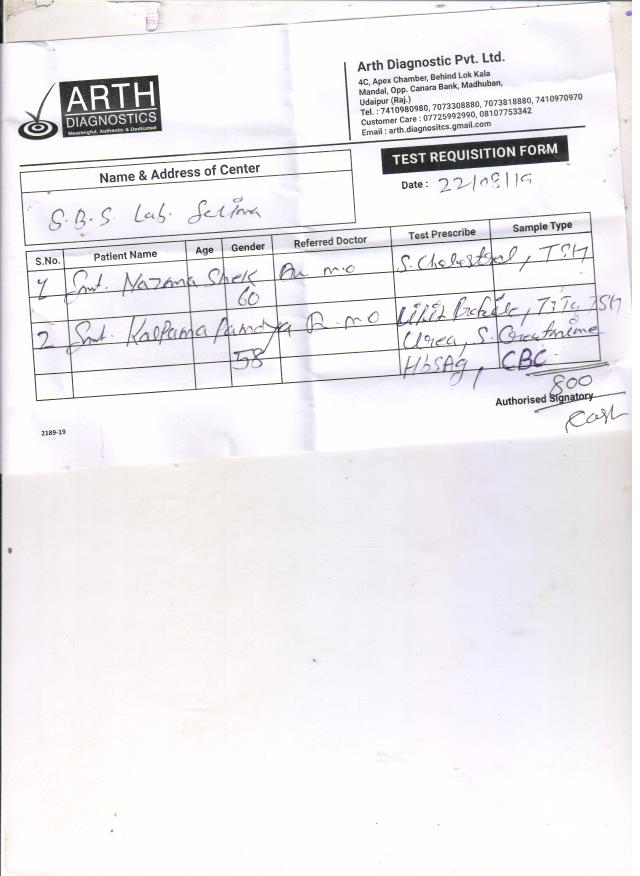 ARTH
DIAGNOSTICS
Meaningful, Authentic & Dedicated
Arth Diagnostic Pvt. Ltd.
4C, Apex Chamber, Behind Lok Kala
Mandal, Opp. Canara Bank, Madhuban,
Udaipur (Raj.)
Tel. : 7410980980, 7073308880, 7073818880, 7410970970
Customer Care : 07725992990, 08107753342
Email : arth.diagnositcs.gmail.com
TEST REQUISITION FORM
Date : 22/08/19
Name & Address of Center
S.B.S Lab.
S.No. Patient Name Age Gender Referred Doctor Test Prescribe Sample Type
1 Smt. Nazma Shek M.O S. Cholestrol, TSH
60
2 Smt. Kalpama Pamdya M.O Lipid Profile, T3 T4 TSH
58 Urea, S. Creatinine
HbSAg, CBC
800
Authorised Signatory
Cash
2189-19